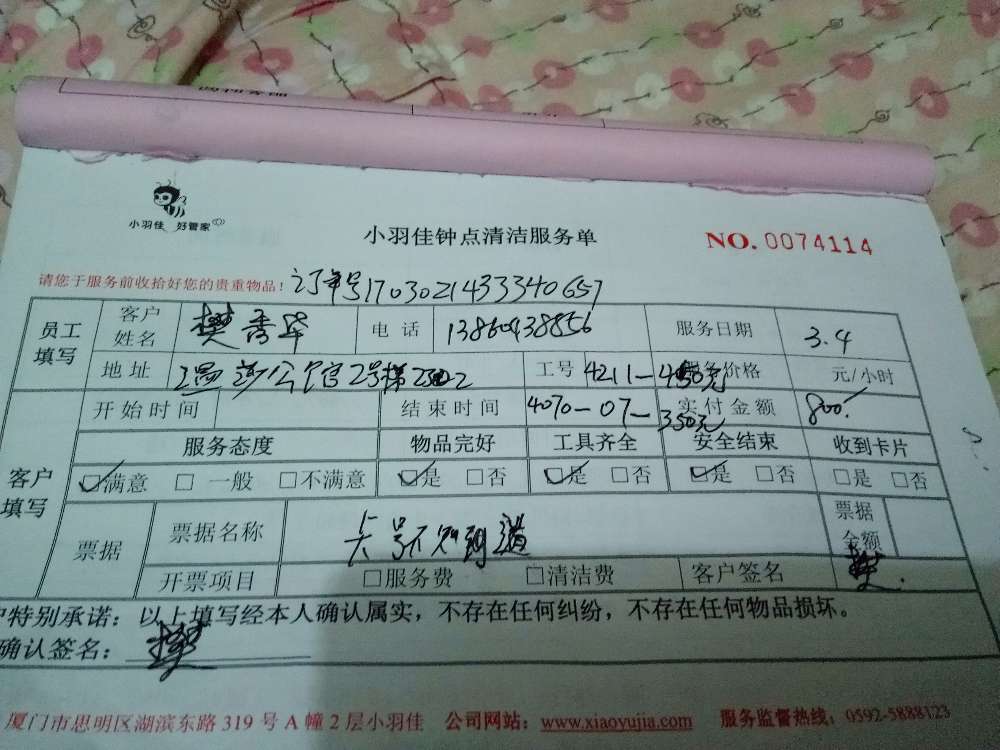 小羽佳 好管家
小羽佳钟点清洁服务单
NO. 0074114
请您于服务前收拾好您的贵重物品! 订单号17030214333340657
员工填写 客户姓名 樊秀华 电话 13860438856 服务日期 3.4
地址 公馆2号楼 工号 4211-450元 服务价格 元/小时
开始时间 结束时间 4070-07-350元 实付金额 800.
客户填写 服务态度 物品完好 工具齐全 安全结束 收到卡片
☑满意 □一般 □不满意 ☑是 □否 ☑是 □否 ☑是 □否 □是 □否
票据 票据名称 卡号不知道 票据金额
开票项目 □服务费 □清洁费 客户签名 樊.
户特别承诺：以上填写经本人确认属实，不存在任何纠纷，不存在任何物品损坏。
确认签名： 樊
厦门市思明区湖滨东路 319 号 A 幢 2 层小羽佳 公司网站：www.xiaoyujia.com 服务监督热线：0592-5888123